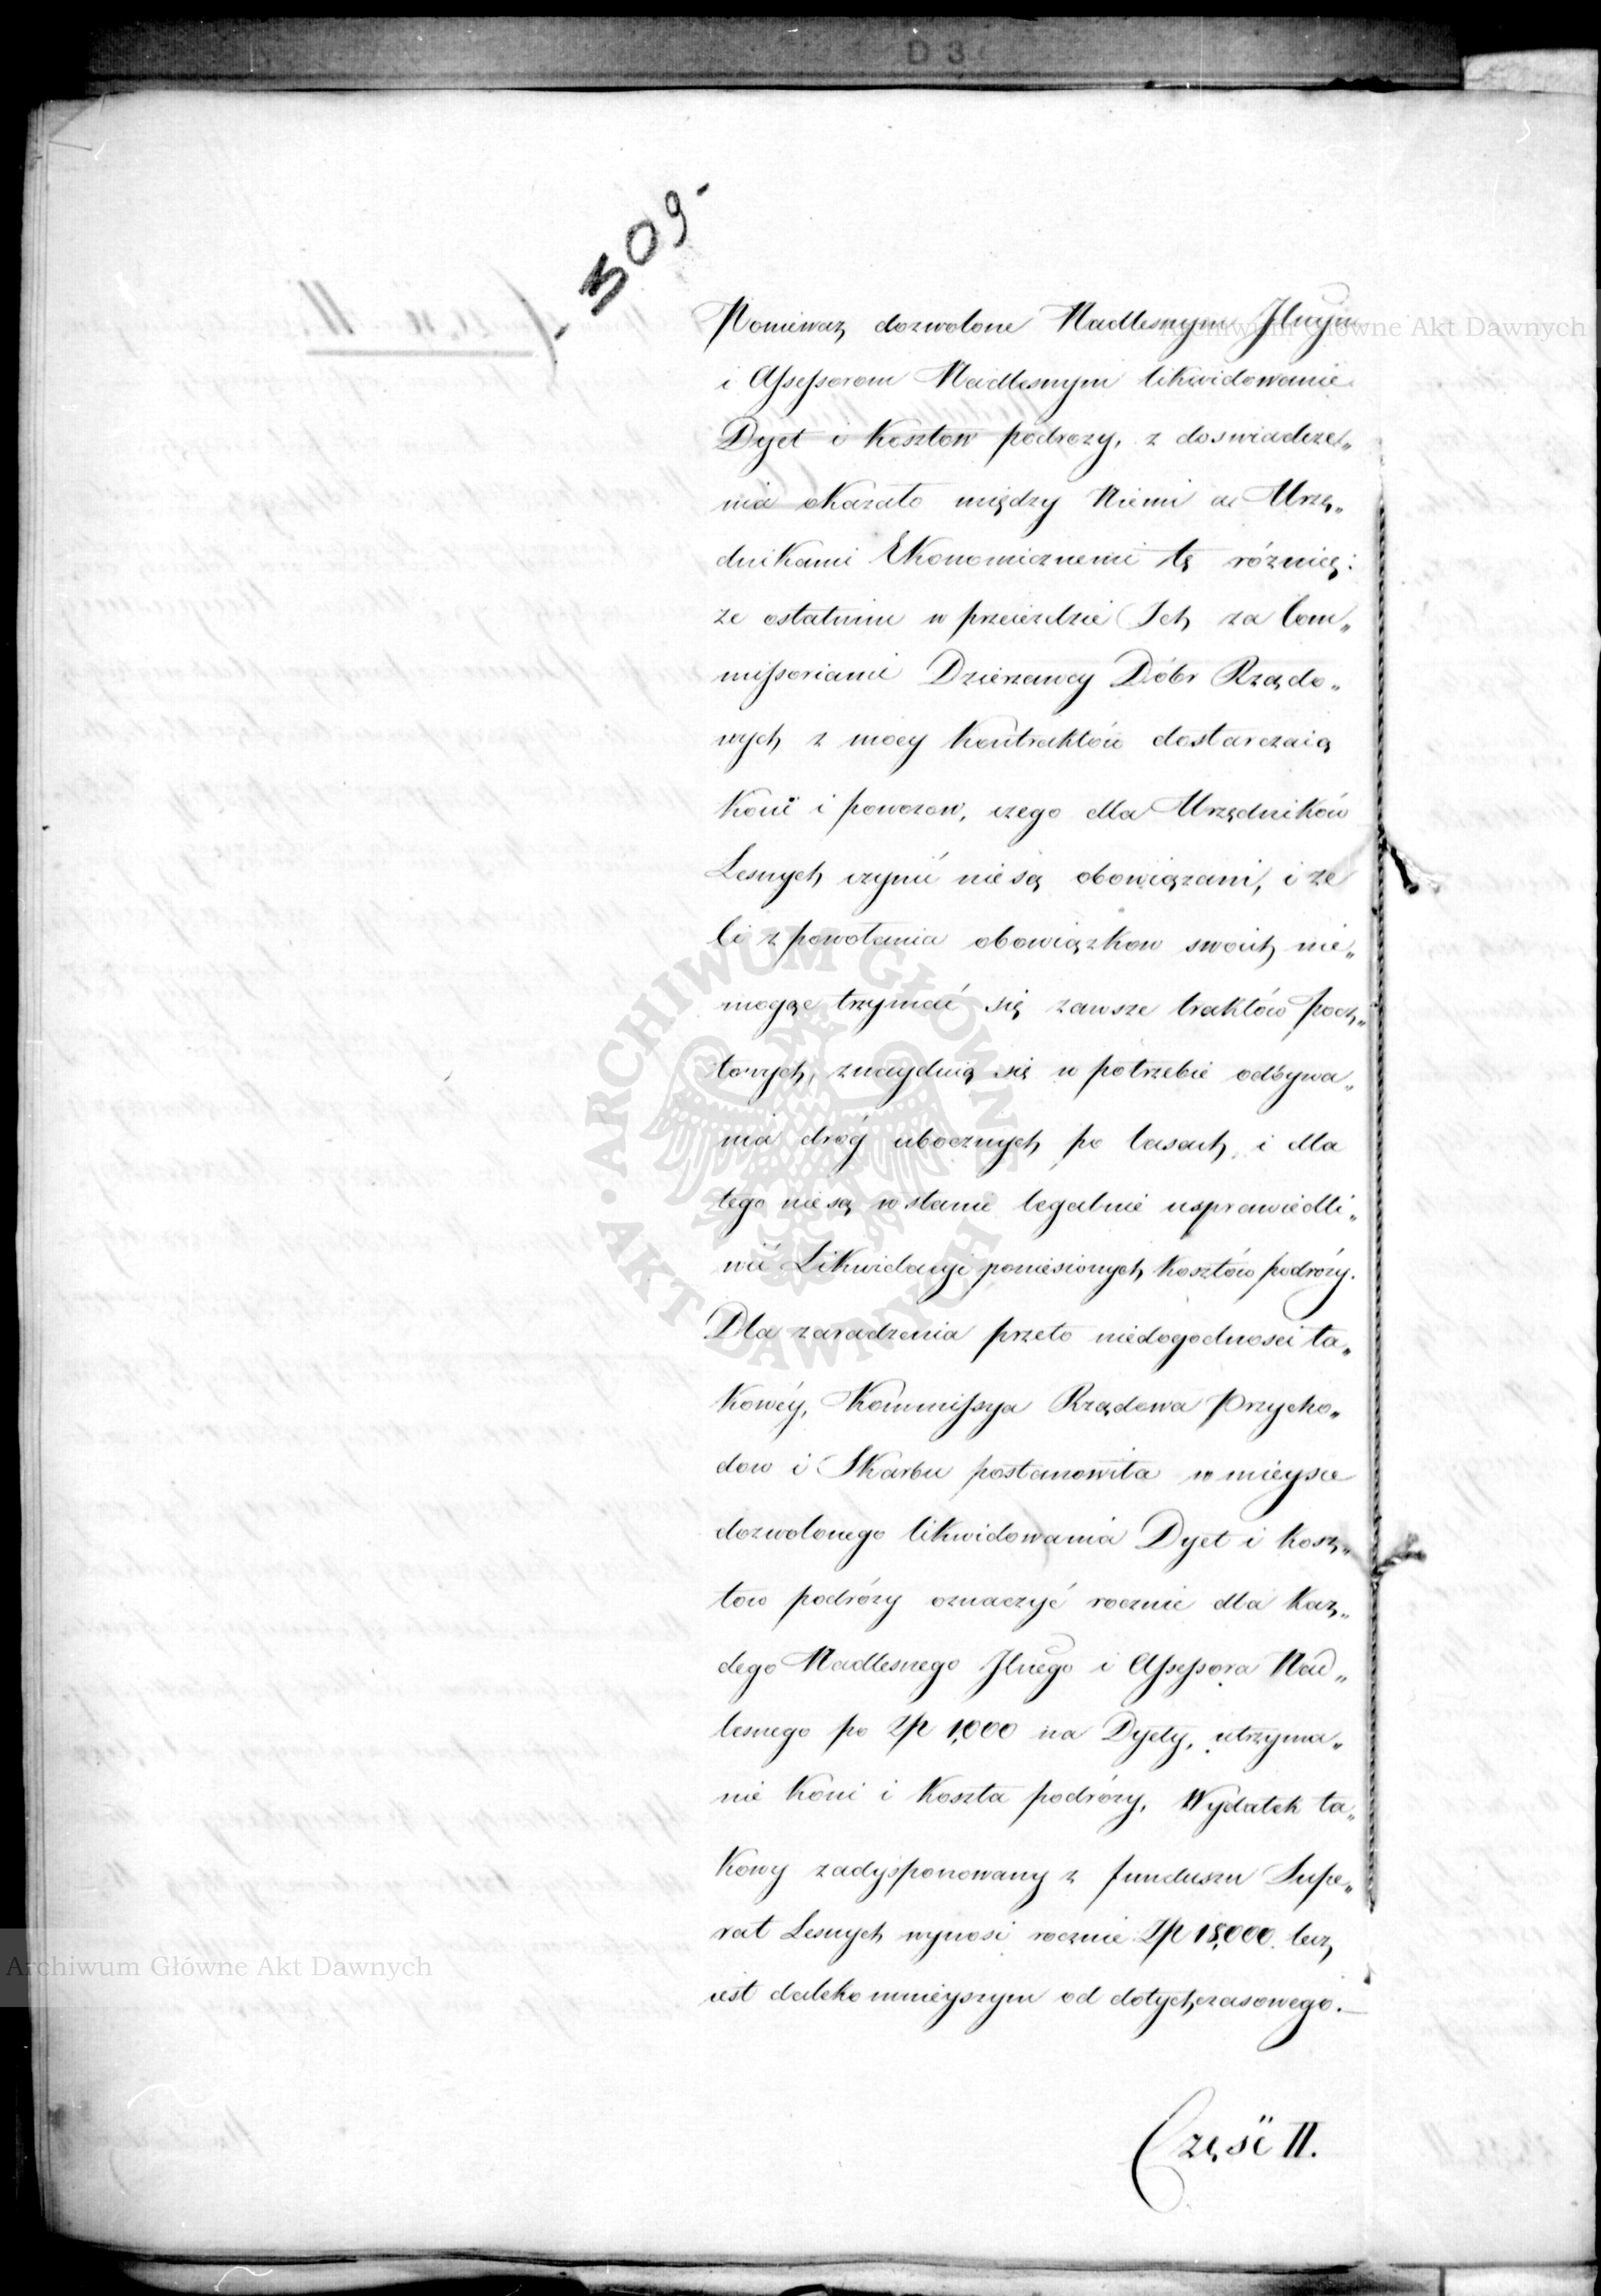 D 3
- 309 -
Ponieważ dozwolone Nadlesnym Jlnym
i Assessorom Nadlesnym likwidowanie
Dyet i Kosztow podrozy, z doswiadcze„
nia okazało między Niemi a Urzę„
dnikami Ekonomicznemi tę różnicę:
że ostatnim w przeiezdzie Ich za Com„
missoriami Dzierzawcy Dóbr Rządo„
wych z mocy Kontraktów dostarczaią
Koni i powozow, czego dla Urzędników
Lesnych czynić nie są obowiązani, i że
Ci z powołania obowiązkow swoich nie„
mogąc trzymać się zawsze traktów pocz„
towych, znayduią się w potrzebie odbywa„
nia dróg ubocznych po lasach, i dla
tego nie są w stanie legalnie usprawiedli„
wić Likwidacyi poniesionych Kosztów podróży.
Dla zaradzenia przeto niedogodnosci ta„
kowéy, Kommissya Rządowa Przycho„
dow i Skarbu postanowiła w mieysce
dozwolonego likwidowania Dyet i Kosz„
tow podróży oznaczyć rocznie dla Kaz„
dego Nadlesnego Jlnego i Assessora Nad„
lesnego po Zł 1,000 na Dyety, utrzyma„
nie Koni i Koszta podróży. Wydatek ta„
Kowy zadysponowany z funduszu Supe„
rat Lesnych wynosi rocznie Zł 18,000. lecz
iest daleko mnieyszym od dotychczasowego.—
Część II.
Archiwum Główne Akt Dawnych
ARCHIWUM GŁÓWNE · AKT DAWNYCH ·
Archiwum Główne Akt Dawnych